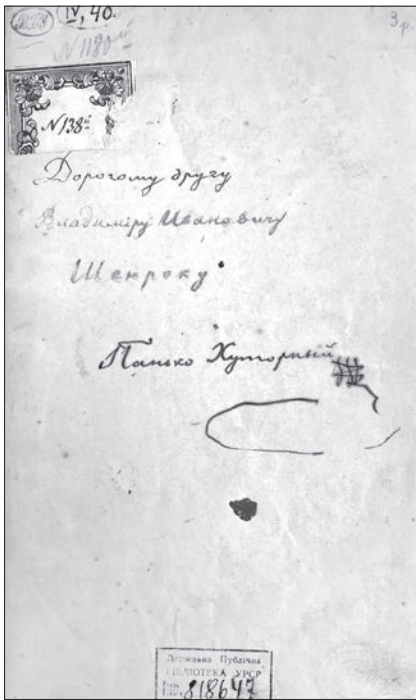 IV, 40.
3 р.
N 1180
N 138
Дорогому другу
Владиміру Ивановичу
Шенроку
Панько Хуторный
Державна Публічна
БІБЛІОТЕКА УРСР
818647